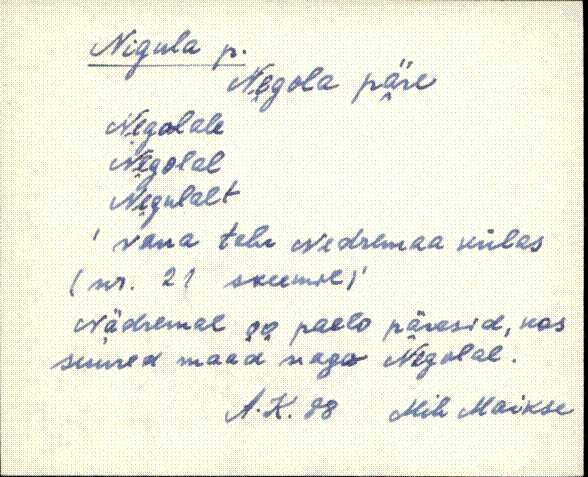 Nigula p.
Nẹgola päre
Nẹgolale
Nẹgolal
Nẹgulalt
' vana talu Nedremaa külas
(nr. 21 skeemil)'
Nädremal õõ paelo pärasid, kos
suured maad nago Nẹgolal.
A.K. 88 Mih Maikse